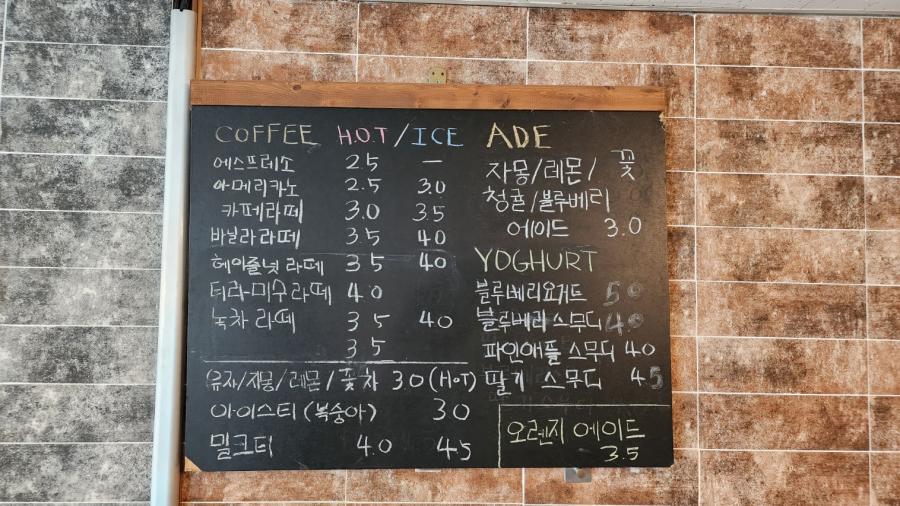 COFFEE HOT / ICE
에스프레소 2.5 —
아메리카노 2.5 3.0
카페라떼 3.0 3.5
바닐라라떼 3.5 4.0
헤이즐넛 라떼 3.5 4.0
티라미수라떼 4.0
녹차 라떼 3.5 4.0
3.5
유자/자몽/레몬/꽃차 3.0 (HOT)
아이스티 (복숭아) 3.0
밀크티 4.0 4.5
ADE
자몽/레몬/꽃
청귤/블루베리
에이드 3.0
YOGHURT
블루베리요거트 5.0
블루베리 스무디 4.0
파인애플 스무디 4.0
딸기 스무디 4.5
오렌지 에이드
3.5